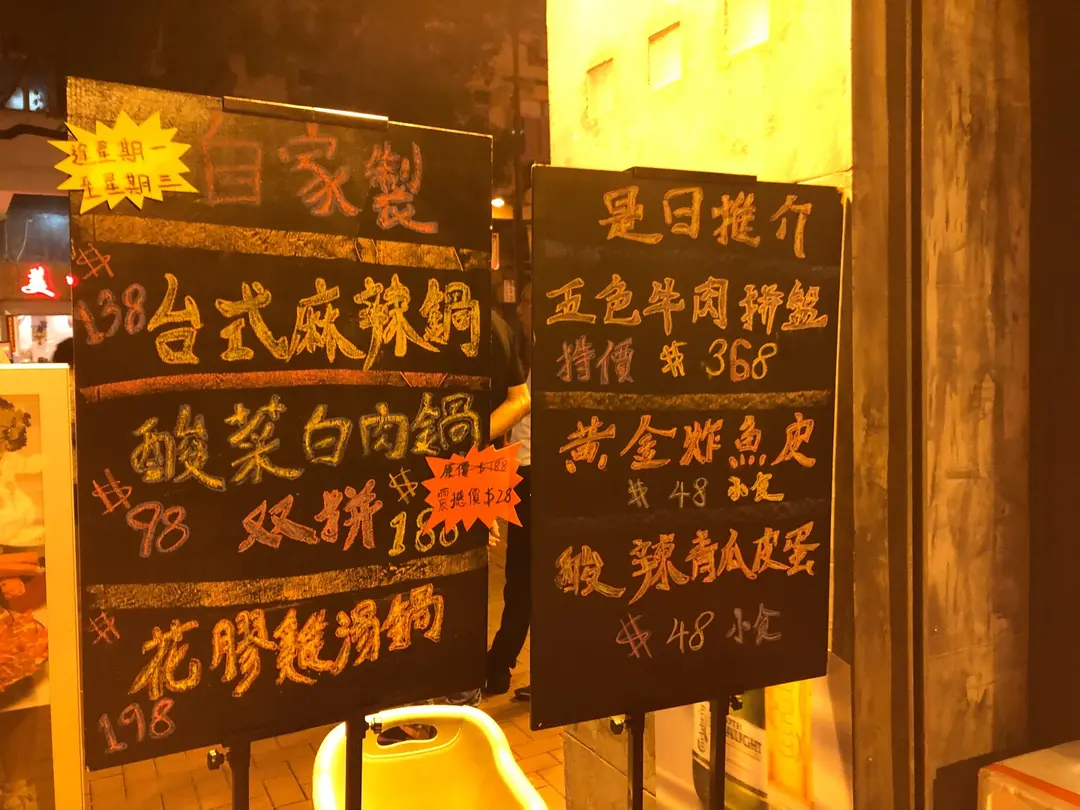 逢星期一
至星期三
自家製
$
138
台式麻辣鍋
酸菜白肉鍋
$
98
双拼
$
188
原價$188
震撼價$28
$
花膠雞湯鍋
198
是日推介
五色牛肉拼盤
特價 $ 368
黃金炸魚皮
$ 48 小食
酸辣青瓜皮蛋
$ 48 小食
美